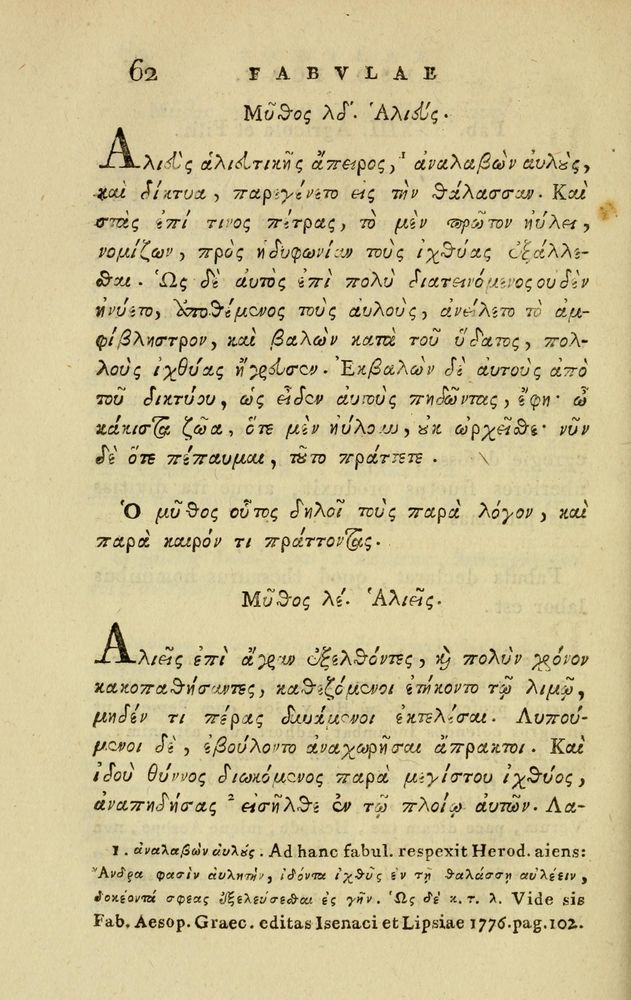 62 FABVLAE
Μῦθος λδ'. Ἁλιεύς.
Ἁλιεὺς ἁλιευτικῆς ἄπειρος, ¹ ἀναλαβὼν ἀυλοὺς,
καὶ δίκτυα, παρεγένετο εις τὴν θάλασσαν. Καὶ
στὰς ἐπί τινος πέτρας, τὸ μὲν πρῶτον ηὔλει,
νομίζων, πρὸς ἡδυφωνίαν τοὺς ἰχθύας ἐξάλλε-
σθαι. Ὡς δὲ ἀυτὸς ἐπὶ πολὺ διατεινόμενος ουδὲν
ἠνύετο, ἀποθέμενος τοὺς ἀυλούς, ἀνείλετο τὸ ἀμ-
φίβληστρον, καὶ βαλὼν κατὰ τοῦ ὕδατος, πολ-
λοὺς ἰχθύας ἤγρευσεν. Ἐκβαλὼν δὲ ἀυτοὺς ἀπὸ
τοῦ δικτύου, ὡς εἶδεν ἀυτοὺς πηδῶντας, ἔφη· ὦ
κάκιστα ζῶα, ὅτε μὲν ηὔλουν, οὐκ ωρχεῖσθε· νῦν
δὲ ὅτε πέπαυμαι, τοῦτο πράττετε.
Ὁ μῦθος οὗτος δηλοῖ τοὺς παρὰ λόγον, καὶ
παρὰ καιρόν τι πράττοντας.
Μῦθος λέ. Ἁλιεῖς.
Ἁλιεῖς ἐπὶ ἄγραν ἐξελθόντες, καὶ πολὺν χρόνον
κακοπαθήσαντες, καθεζόμενοι ἐτήκοντο τῷ λιμῷ,
μηδέν τι πέρας δυνάμενοι ἐκτελέσαι. Λυπού-
μενοι δὲ, ἐβούλοντο ἀναχωρῆσαι ἄπρακτοι. Καὶ
ἰδοὺ θύννος διωκόμενος παρὰ μεγίστου ἰχθύος,
ἀναπηδήσας ² εισῆλθε ἐν τῷ πλοίῳ ἀυτῶν. Λα-
1. ἀναλαβὼν ἀυλούς. Ad hanc fabul. respexit Herod. aiens:
Ἄνδρα φασὶν ἀυλητὴν, ἰδόντα ἰχθῦς ἐν τῇ θαλάσσῃ αυλέειν,
δοκέοντά σφεας ἐξελεύσεσθαι ἐς γῆν. Ὡς δὲ κ. τ. λ. Vide sis
Fab. Aesop. Graec. editas Isenaci et Lipsiae 1776. pag. 102.